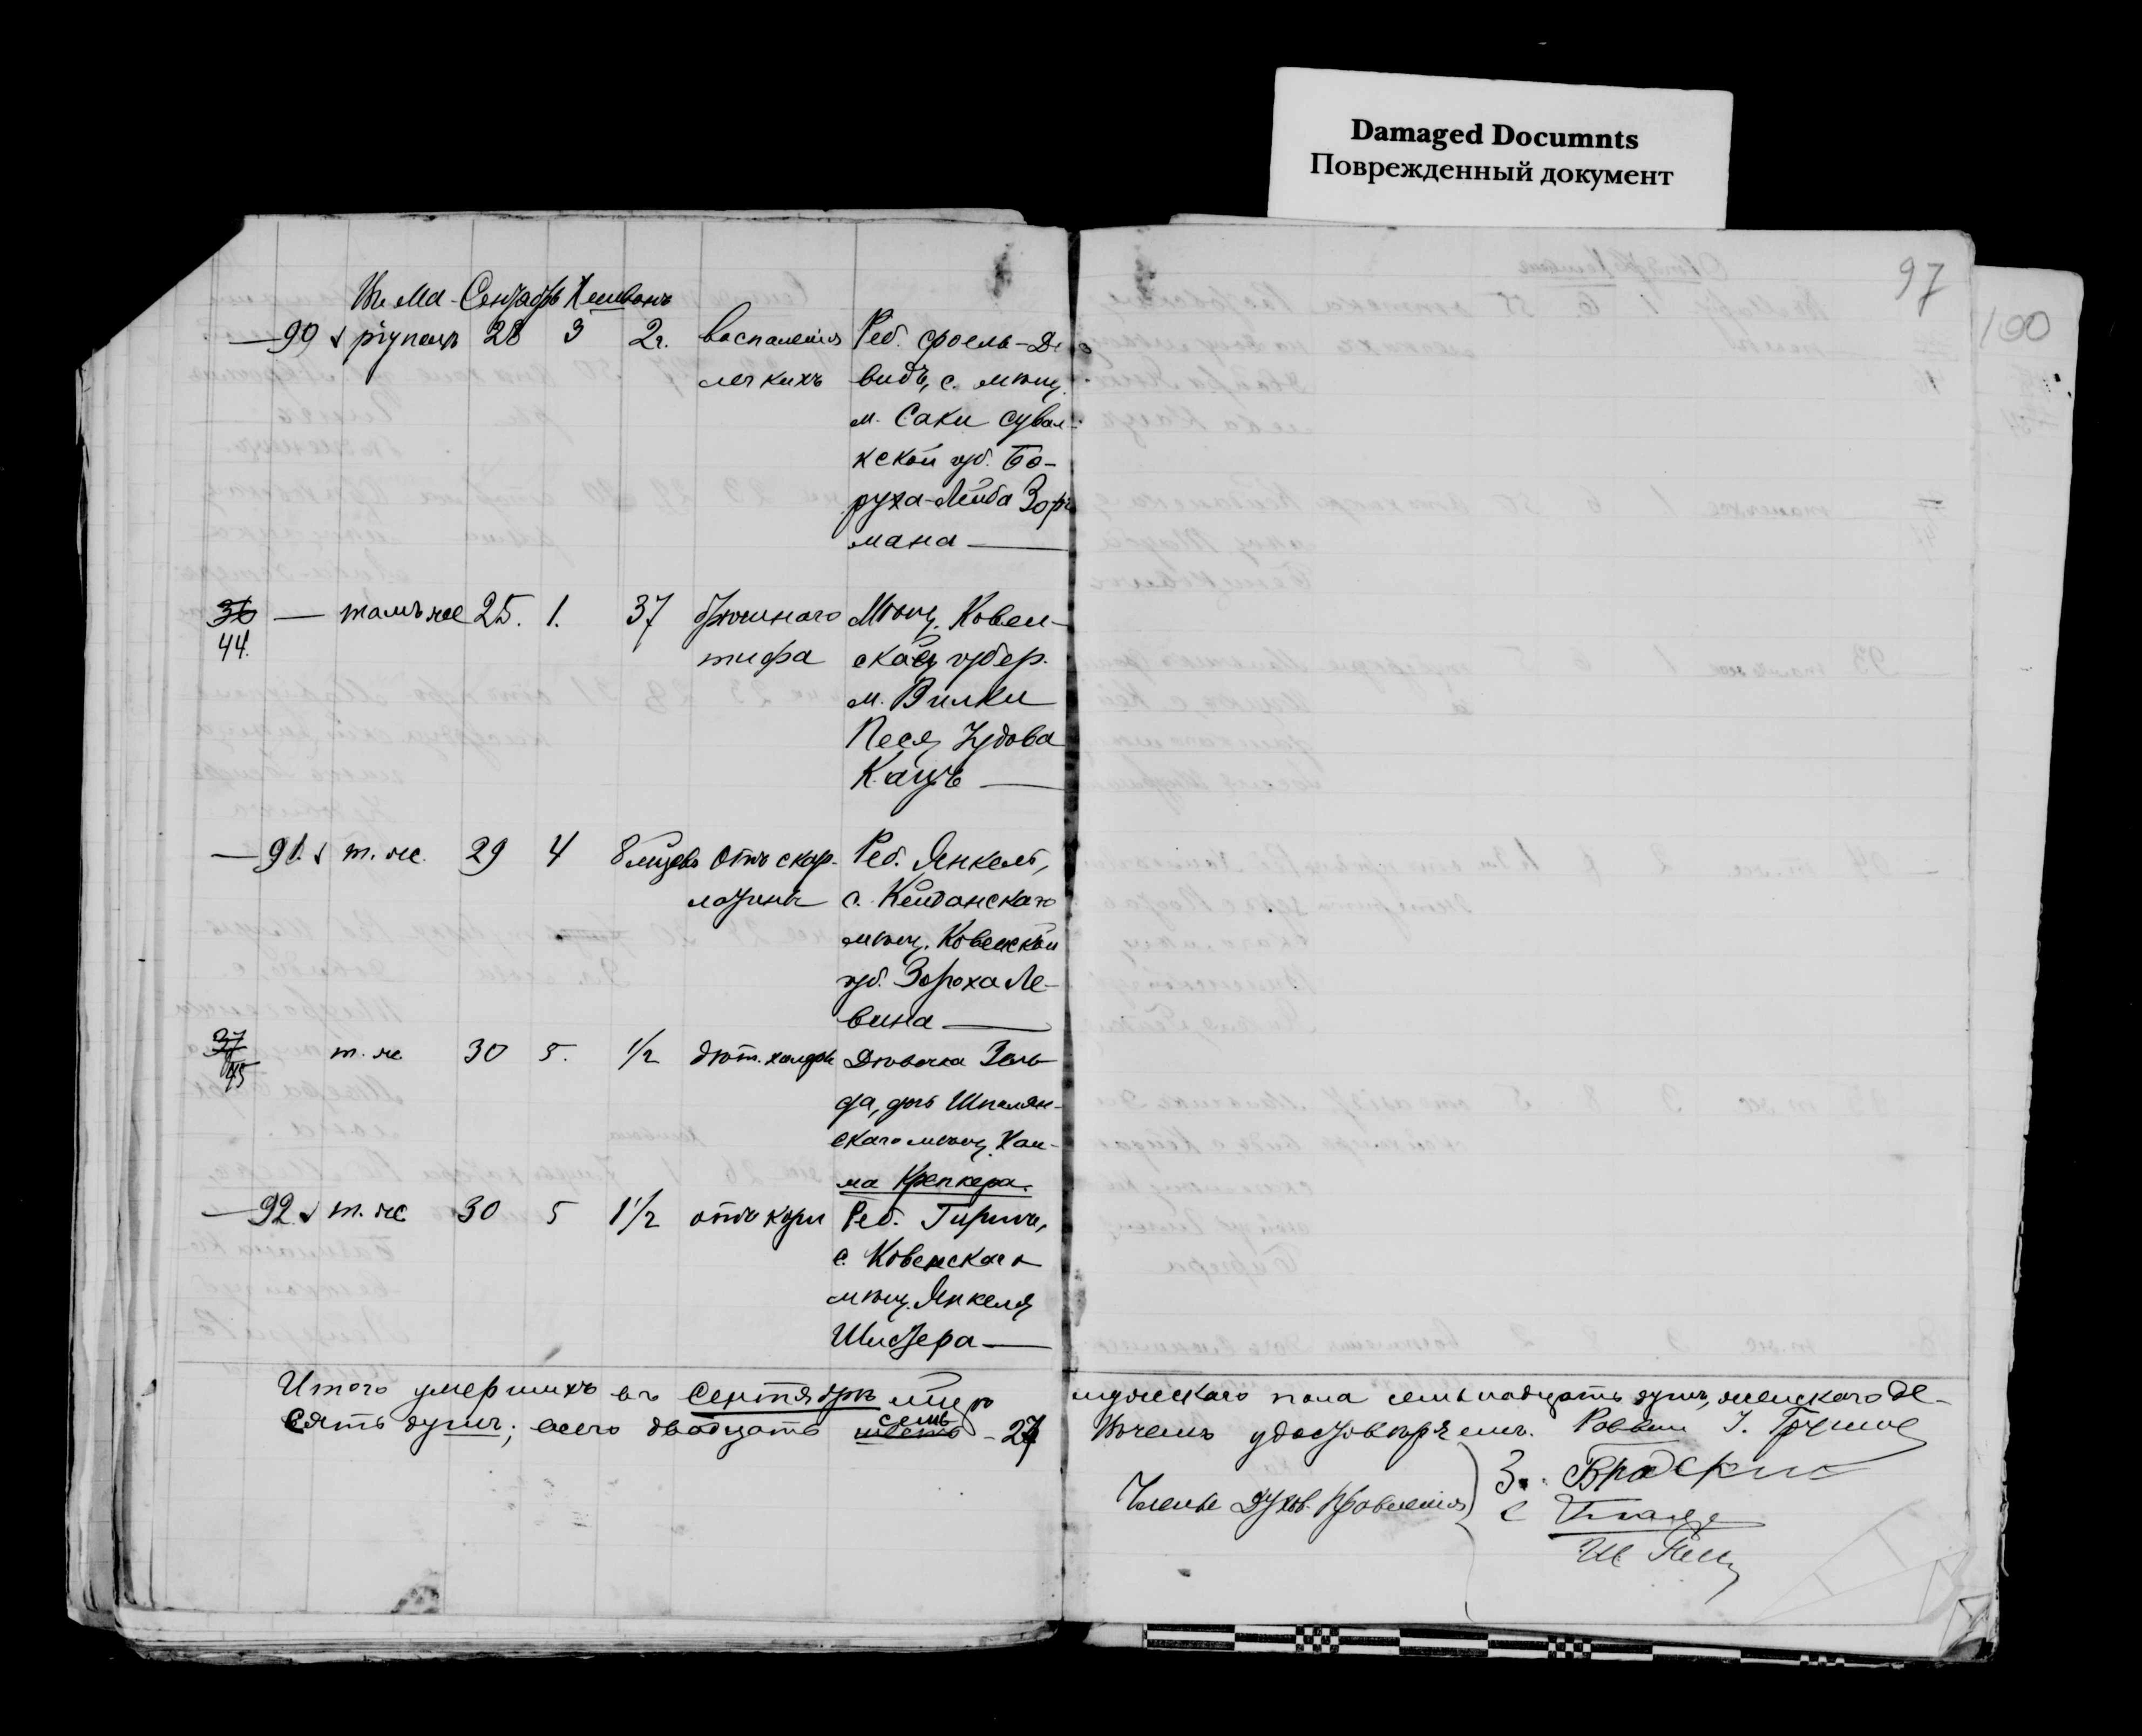 Damaged Documnts
Поврежденный документ
97
100
Сентябрь Хешвонъ
90 28 3 2 г. воспаленія Реб. Фроель-Да-
легкихъ видъ, с. мѣщ.
м. Саки Сувал-
кской губ. Бо-
руха-Лейба
мана
36 — тамъ же 25. 1. 37 брюшнаго Мѣщ. Ковен-
44. тифа ской губер.
м. Вилки
Песя Юдова
Кацъ
91. т. же. 29 4 8 мѣсяцевъ отъ скар- Реб. Янкель,
латины с. Кейданскаго
мѣщ. Ковенской
губ. Зороха Ле-
вина
37 т. же 30 5. 1/2 Дѣвочка Зель-
45 да, дочь Шпалян-
скаго мѣщ. Хаи-
ма Крепкера.
92. т. же 30 5 1 1/2 отъ кори Реб. Гиршъ,
с. Ковенскаго
мѣщ. Янкеля
Шустера
Итого умершихъ въ Сентябрѣ мѣс. мужескаго пола семьнадцать душъ, женскаго де-
сять душъ; всего двадцать шесть семь - 27 Въ чемъ удостовѣряемъ. Раввинъ
Члены Духов. Правленія
З. Бродскій